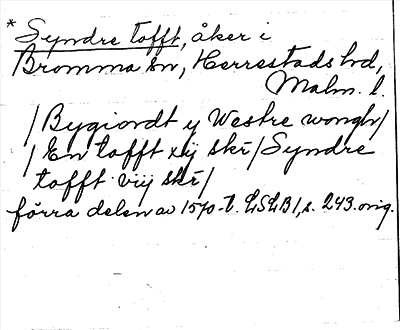 * Syndre tofft, åker i
Bromma sn, Herrestads hd,
Malm. l.
/Bygiordt y Westre wongh/
/En tofft xij skr/Syndre
tofft vij skr/
förra delen av 1570-t. LSLB1, s. 243. orig.